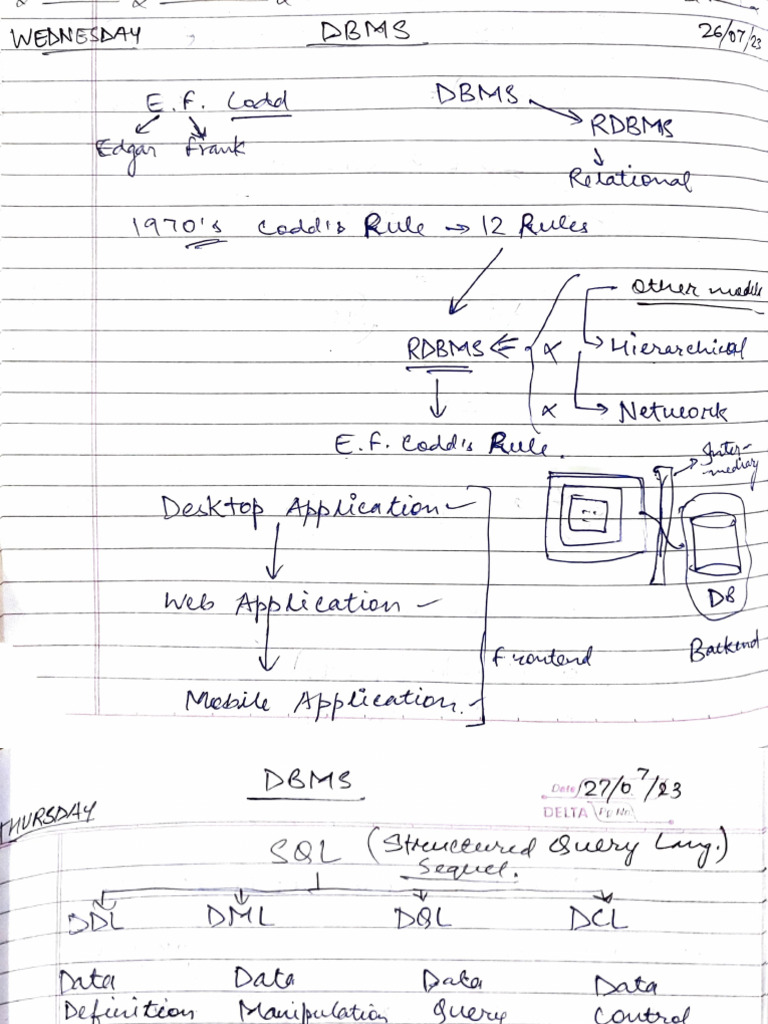 WEDNESDAY DBMS 26/07/23
E.F. Codd DBMS
Edgar Frank RDBMS
Relational
1970's Codd's Rule → 12 Rules
Other models
RDBMS Hierarchical
Network
E.F. Codd's Rule.
Inter-
mediary
Desktop Application
Web Application DB
Frontend Backend
Mobile Application.
DBMS
Date 27/07/23
THURSDAY DELTA Pg No.
SQL (Structured Query Lang.)
Sequel.
DDL DML DQL DCL
Data Data Data Data
Definition Manipulation Query Control